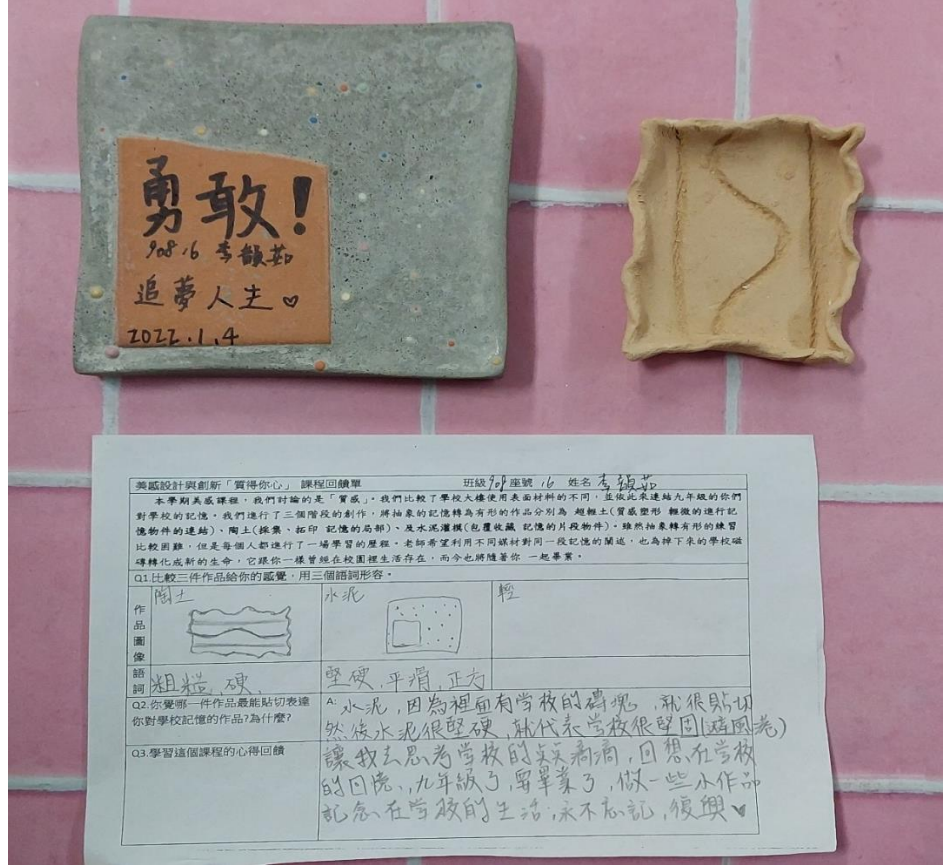 勇敢!
908.16 李韻茹
追夢人生♡
2022.1.4
美感設計與創新「質得你心」 課程回饋單 班級908 座號16 姓名 李韻茹
本學期美感課程,我們討論的是「質感」。我們比較了學校大樓使用表面材料的不同,並依此來連結九年級的你們
對學校的記憶。我們進行了三個階段的創作,將抽象的記憶轉為有形的作品分別為 超輕土(質感塑形 輕微的進行記
憶物件的連結)、陶土(採集、拓印 記憶的局部)、及水泥灌模(包覆收藏 記憶的片段物件)。雖然抽象轉有形的練習
比較困難,但是每個人都進行了一場學習的歷程。老師希望利用不同媒材對同一段記憶的闡述,也為掉下來的學校磁
磚轉化成新的生命,它跟你一樣曾經在校園裡生活存在,而今也將隨著你 一起畢業。
Q1.比較三件作品給你的感覺,用三個語詞形容。
作品圖像 陶土 水泥 輕
語詞 粗糙、硬、 堅硬,平滑,正方
Q2.你覺哪一件作品最能貼切表達
你對學校記憶的作品?為什麼?
A:水泥,因為裡面有学校的磚塊,就很貼切
然後水泥很堅硬,就代表学校很堅固(避風港)
Q3.學習這個課程的心得回饋
讓我去思考学校的点点滴滴,回想在学校
的回憶,九年級了,要畢業了,做一些小作品
記念在学校的生活,永不忘記,復興♥